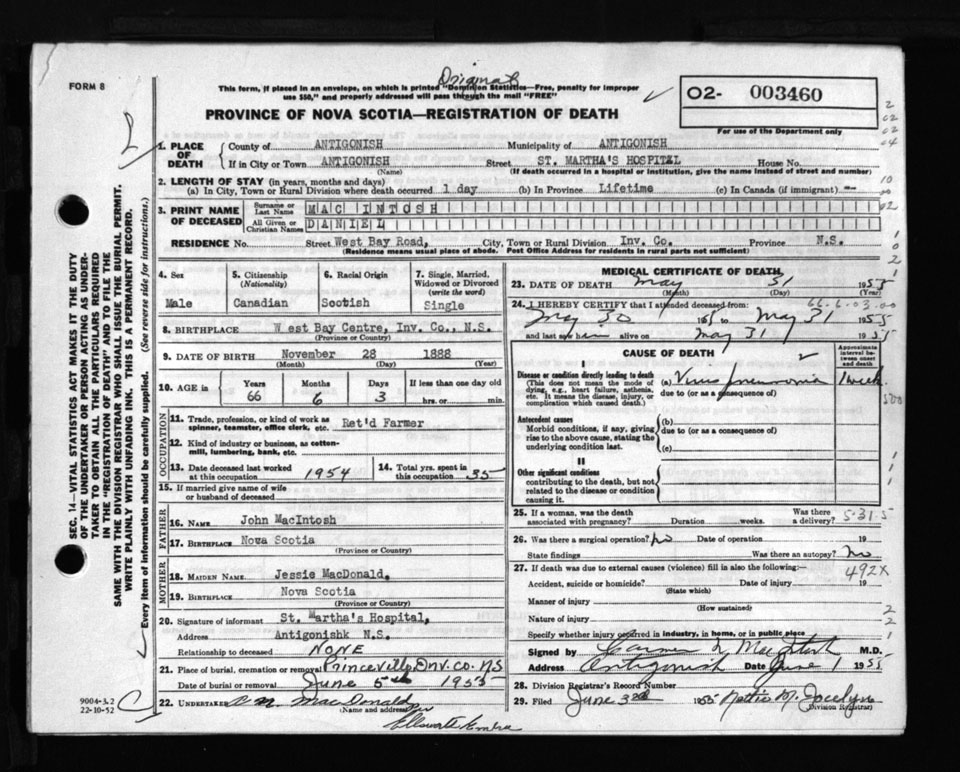 FORM 8
Original
This form, if placed in an envelope, on which is printed "Dominion Statistics—Free, penalty for improper
use $50," and properly addressed will pass through the mail "FREE"
PROVINCE OF NOVA SCOTIA—REGISTRATION OF DEATH
02- 003460
For use of the Department only
1. PLACE OF DEATH
County of ANTIGONISH Municipality of ANTIGONISH
If in City or Town ANTIGONISH Street ST. MARTHA'S HOSPITAL House No.
(Name) (If death occurred in a hospital or institution, give the name instead of street and number)
2. LENGTH OF STAY (in years, months and days)
(a) In City, Town or Rural Division where death occurred 1 day (b) In Province Lifetime (c) In Canada (if immigrant) --
3. PRINT NAME OF DECEASED
Surname or Last Name MAC INTOSH
All Given or Christian Names DANIEL
RESIDENCE No. Street West Bay Road, City, Town or Rural Division Inv. Co. Province N.S.
(Residence means usual place of abode. Post Office Address for residents in rural parts not sufficient)
4. Sex Male
5. Citizenship (Nationality) Canadian
6. Racial Origin Scotish
7. Single, Married, Widowed or Divorced (write the word) Single
8. BIRTHPLACE West Bay Centre, Inv. Co., N.S.
(Province or Country)
9. DATE OF BIRTH November 28 1888
(Month) (Day) (Year)
10. AGE in Years 66 Months 6 Days 3 If less than one day old
hrs. or min.
OCCUPATION
11. Trade, profession, or kind of work as spinner, teamster, office clerk, etc. Ret'd Farmer
12. Kind of industry or business, as cotton-mill, lumbering, bank, etc.
13. Date deceased last worked at this occupation 1954
14. Total yrs. spent in this occupation 35
15. If married give name of wife or husband of deceased
FATHER
16. NAME John MacIntosh
17. BIRTHPLACE Nova Scotia
(Province or Country)
MOTHER
18. MAIDEN NAME Jessie MacDonald,
19. BIRTHPLACE Nova Scotia
(Province or Country)
20. Signature of informant St. Martha's Hospital,
Address Antigonishk N.S.
Relationship to deceased NONE
21. Place of burial, cremation or removal Princeville Inv. co. NS
Date of burial or removal June 5th 1955
22. UNDERTAKER MacDonald
(Name and address)
MEDICAL CERTIFICATE OF DEATH
23. DATE OF DEATH May 31 1955
(Month) (Day) (Year)
24. I HEREBY CERTIFY that I attended deceased from:
66-6-03-00
May 30 1955 to May 31 1955
and last saw him alive on May 31 1955
CAUSE OF DEATH
Approximate interval between onset and death
I
Disease or condition directly leading to death
(This does not mean the mode of dying, e.g., heart failure, asthenia, etc. It means the disease, injury, or complication which caused death.)
(a) Virus pneumonia 1 week
due to (or as a consequence of)
Antecedent causes
Morbid conditions, if any, giving rise to the above cause, stating the underlying condition last.
(b)
due to (or as a consequence of)
(c)
II
Other significant conditions
contributing to the death, but not related to the disease or condition causing it.
25. If a woman, was the death associated with pregnancy? Duration weeks. Was there a delivery?
5-31-5
26. Was there a surgical operation? No Date of operation 19
State findings Was there an autopsy? No
27. If death was due to external causes (violence) fill in also the following:—
492X
Accident, suicide or homicide? Date of injury 19
(State which)
Manner of injury
(How sustained)
Nature of injury
Specify whether injury occurred in industry, in home, or in public place
Signed by MacIntosh M.D.
Address Antigonish Date June 1 1955
28. Division Registrar's Record Number
29. Filed June 3rd 1955 Nettie M. Jocelyn
(Division Registrar)
SEC. 14—VITAL STATISTICS ACT MAKES IT THE DUTY
OF THE UNDERTAKER OR PERSON ACTING AS UNDER-
TAKER TO OBTAIN ALL THE PARTICULARS REQUIRED
IN THE "REGISTRATION OF DEATH" AND TO FILE THE
SAME WITH THE DIVISION REGISTRAR WHO SHALL ISSUE THE BURIAL PERMIT.
WRITE PLAINLY WITH UNFADING INK. THIS IS A PERMANENT RECORD.
Every item of information should be carefully supplied. (See reverse side for instructions.)
9004-3.2
22-10-52